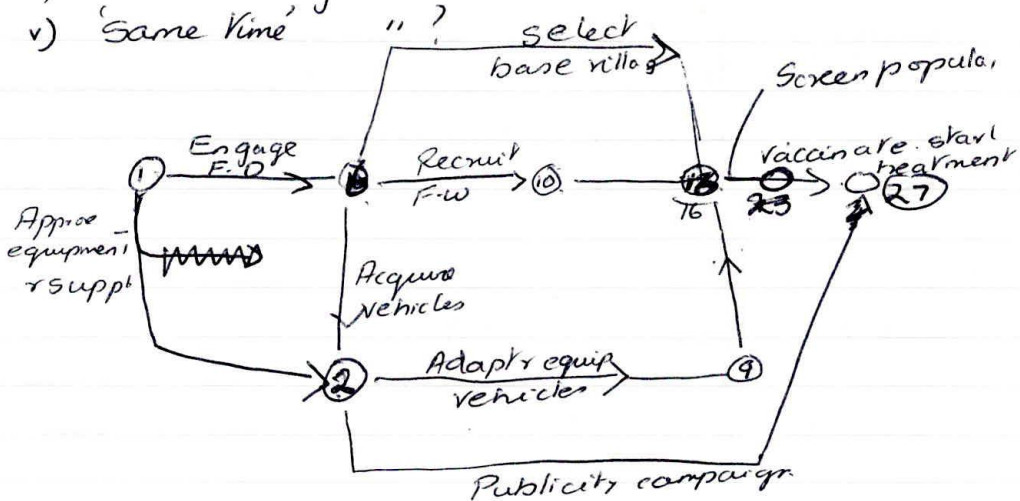 v) 'Same time' " ?
select
base villag
Screen popula,
Engage
F.O
Recruit
F-W
vaccinate. start
treatment
1
10
16
23
27
Approe
equipment
r suppl
Acquire
vehicles
2
Adapt r equip
vehicles
9
Publicity campaign.